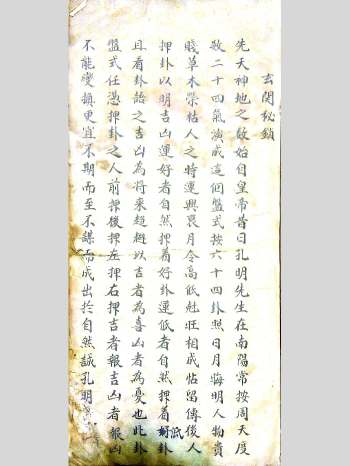 玄関秘鎖
先天神地之故始自皇帝昔日孔明先生在南陽常按周天度
数二十四氣演成這個盤式按六十四卦照日月晦明人物貴
賤草木榮枯人之時運興喪月令高低魁旺相成帖留傳後人
押卦以明吉凶運好者自然押着好卦運低者自然押着低卦
且看卦語之吉凶為将来趨避以吉者為喜凶者為憂也此卦
盤式任憑押卦之人前押後押左押右押吉者報吉凶者報凶
不能變鎮更宜不期而至不謀而成出於自然誠孔明